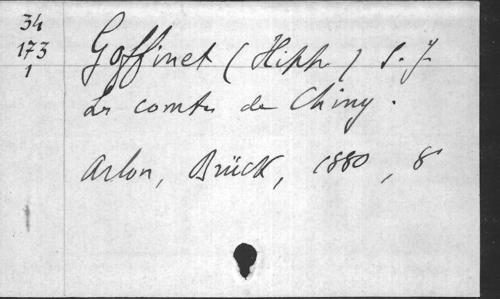 34
173
1
Goffinet (Hipp.) S. J.
Les comtes de Chiny.
Arlon, Brück, 1880, 8°